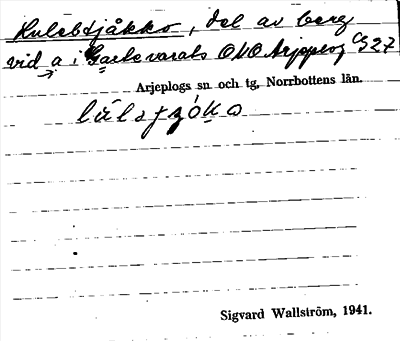 Hulebtjåkko, del av berg
vid a i Gaskevarats OMO Arjeplog C 327
Arjeplogs sn och tg, Norrbottens län.
Sigvard Wallström, 1941.